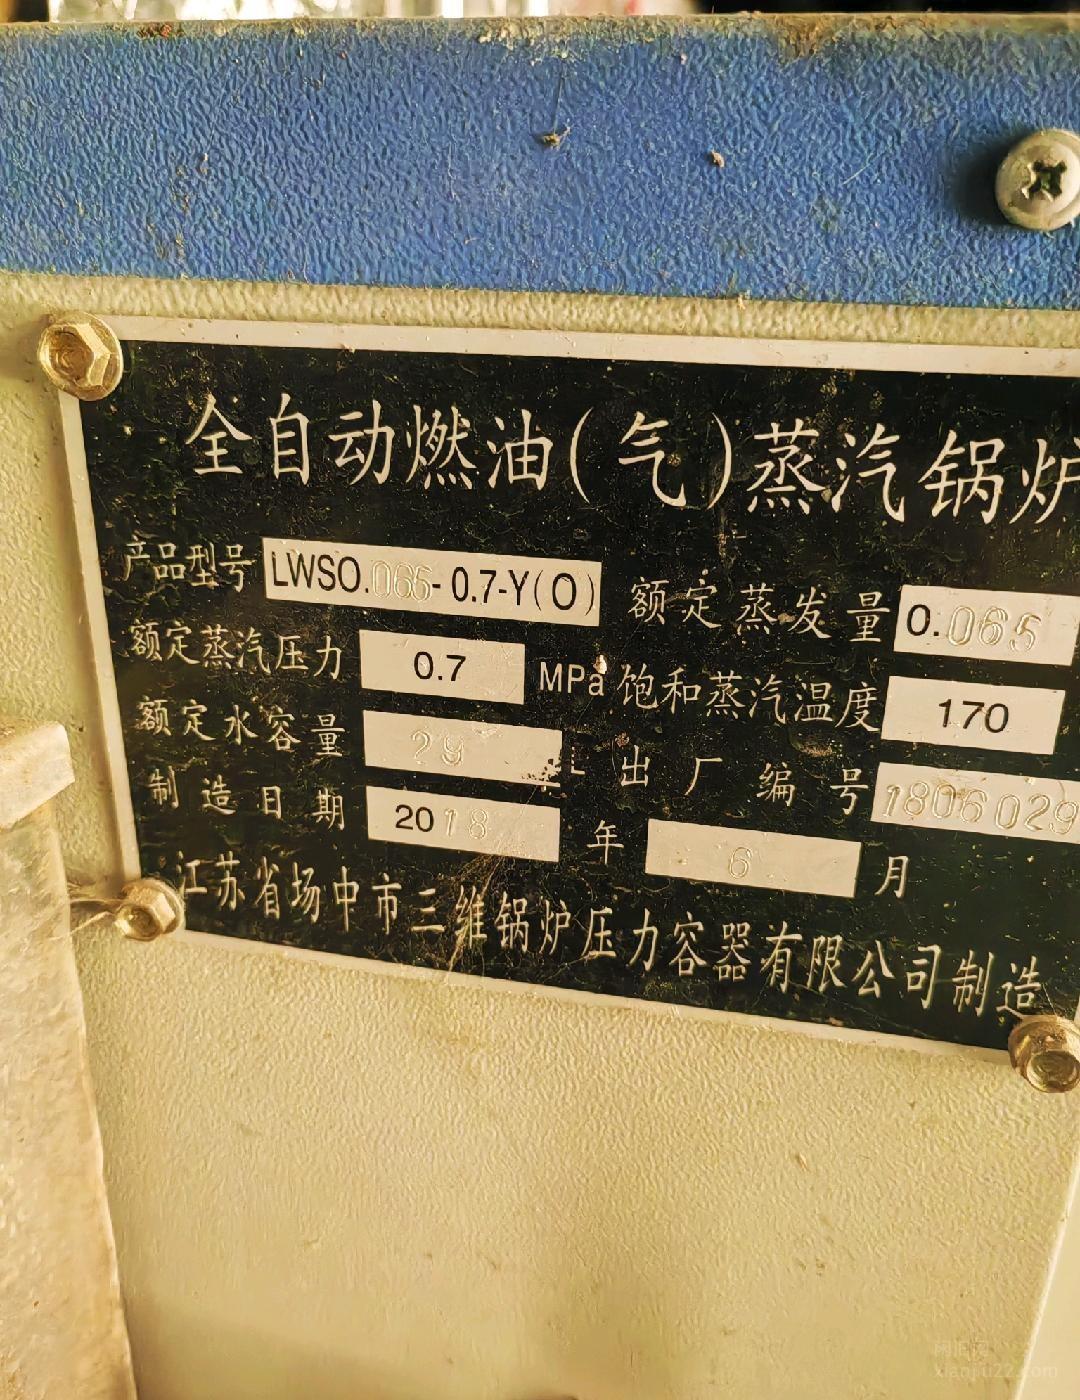 全自动燃油(气)蒸汽锅炉
产品型号 LWSO.065-0.7-Y(O) 额定蒸发量 0.065
额定蒸汽压力 0.7 MPa 饱和蒸汽温度 170
额定水容量 29 L 出厂编号 1806029
制造日期 2018 年 6 月
江苏省扬中市三维锅炉压力容器有限公司制造
xianjiu22.com